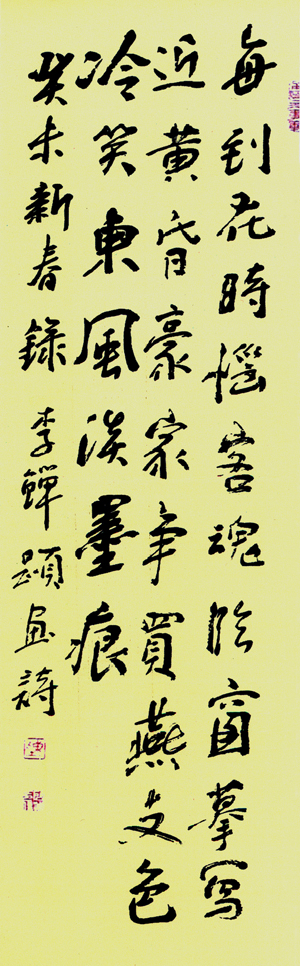 每到花時惱客魂臨窗摹寫
近黃昏豪家爭買燕支色
冷笑東風淡墨痕
癸未新春錄李鱓題畫詩